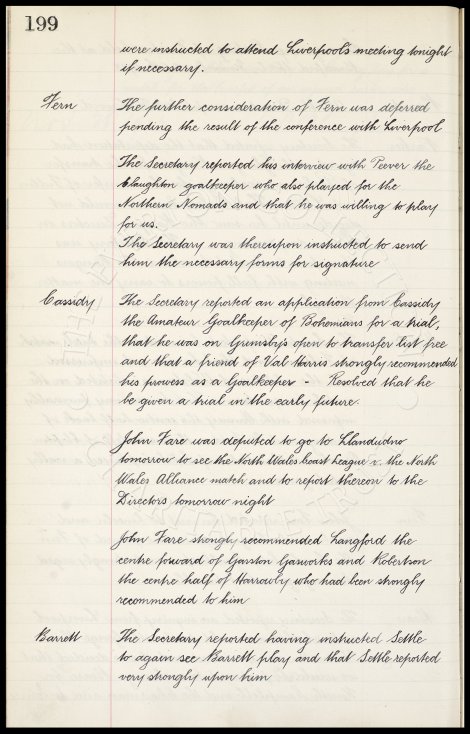 199
were instructed to attend Liverpool's meeting tonight
if necessary.
Fern
The further consideration of Fern was deferred
pending the result of the conference with Liverpool
The Secretary reported his interview with Peever the
Claughton goalkeeper who also played for the
Northern Nomads and that he was willing to play
for us.
The Secretary was thereupon instructed to send
him the necessary forms for signature
Cassidy
The Secretary reported an application from Cassidy
the Amateur Goalkeeper of Bohemians for a trial,
that he was on Grimsby's open to transfer list free
and that a friend of Val Harris strongly recommended
his prowess as a Goalkeeper - Resolved that he
be given a trial in the early future.
John Fare was deputed to go to Llandudno
tomorrow to see the North Wales Coast League v. the North
Wales Alliance match and to report thereon to the
Directors tomorrow night
John Fare strongly recommended Langford the
centre forward of Garston Gasworks and Robertson
the centre half of Harrowby who had been strongly
recommended to him
Barrett
The Secretary reported having instructed Settle
to again see Barrett play and that Settle reported
very strongly upon him